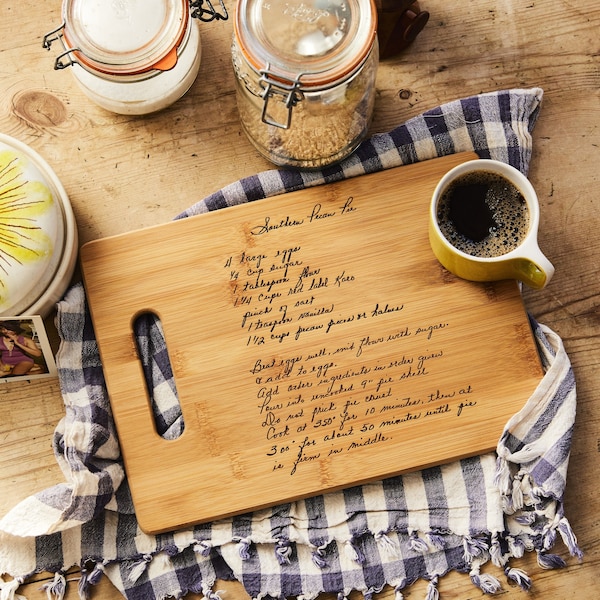 Southern Pecan Pie
4 large eggs
1/4 cup sugar
2 tablespoon flour
1 1/4 cups red label Karo
pinch of salt
1 teaspoon vanilla
1 1/2 cups pecan pieces or halves
Beat eggs well, mix flour with sugar.
Add to eggs.
Add other ingredients in order given
Pour into uncooked 9" pie shell
Do not prick pie crust
Cook at 350° for 10 minutes, then at
300° for about 50 minutes until pie
is firm in middle.